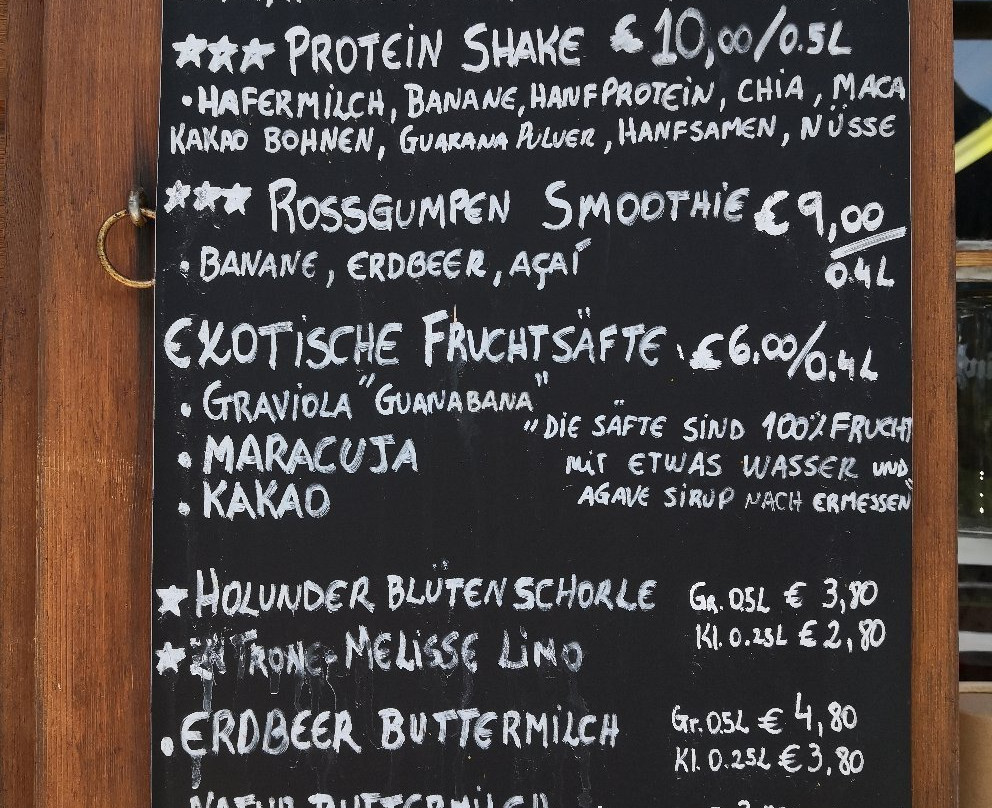 *** PROTEIN SHAKE € 10,00/0.5L
• HAFERMILCH, BANANE, HANFPROTEIN, CHIA, MACA
KAKAO BOHNEN, GUARANA PULVER, HANFSAMEN, NÜSSE
*** ROSSGUMPEN SMOOTHIE € 9,00
• BANANE, ERDBEER, AÇAÍ 0.4L
EXOTISCHE FRUCHTSÄFTE € 6.00/0.4L
• GRAVIOLA "GUANABANA"
"DIE SÄFTE SIND 100% FRUCHT
• MARACUJA
MIT ETWAS WASSER UND
• KAKAO
AGAVE SIRUP NACH ERMESSEN"
★ HOLUNDER BLÜTENSCHORLE GR. 05L € 3,80
Kl. 0.25L € 2,80
★ ZITRONE-MELISSE LIMO
• ERDBEER BUTTERMILCH Gr. 05L € 4,80
Kl. 0.25L € 3,80
NATUR BUTTERMILCH